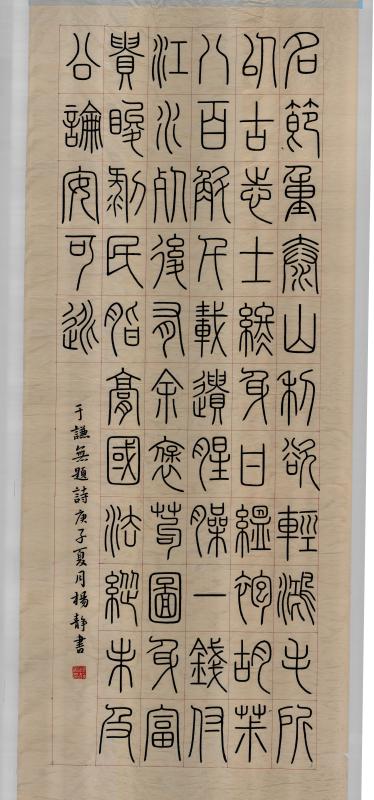 名節重泰山利欲輕鴻毛所
以古志士終身甘縕袍胡椒
八百斛千載遺腥臊一錢付
江水死後有余褒苟圖身富
貴朘剝民脂膏國法縱未及
公論安可逃
于謙無題詩庚子夏月楊靜書